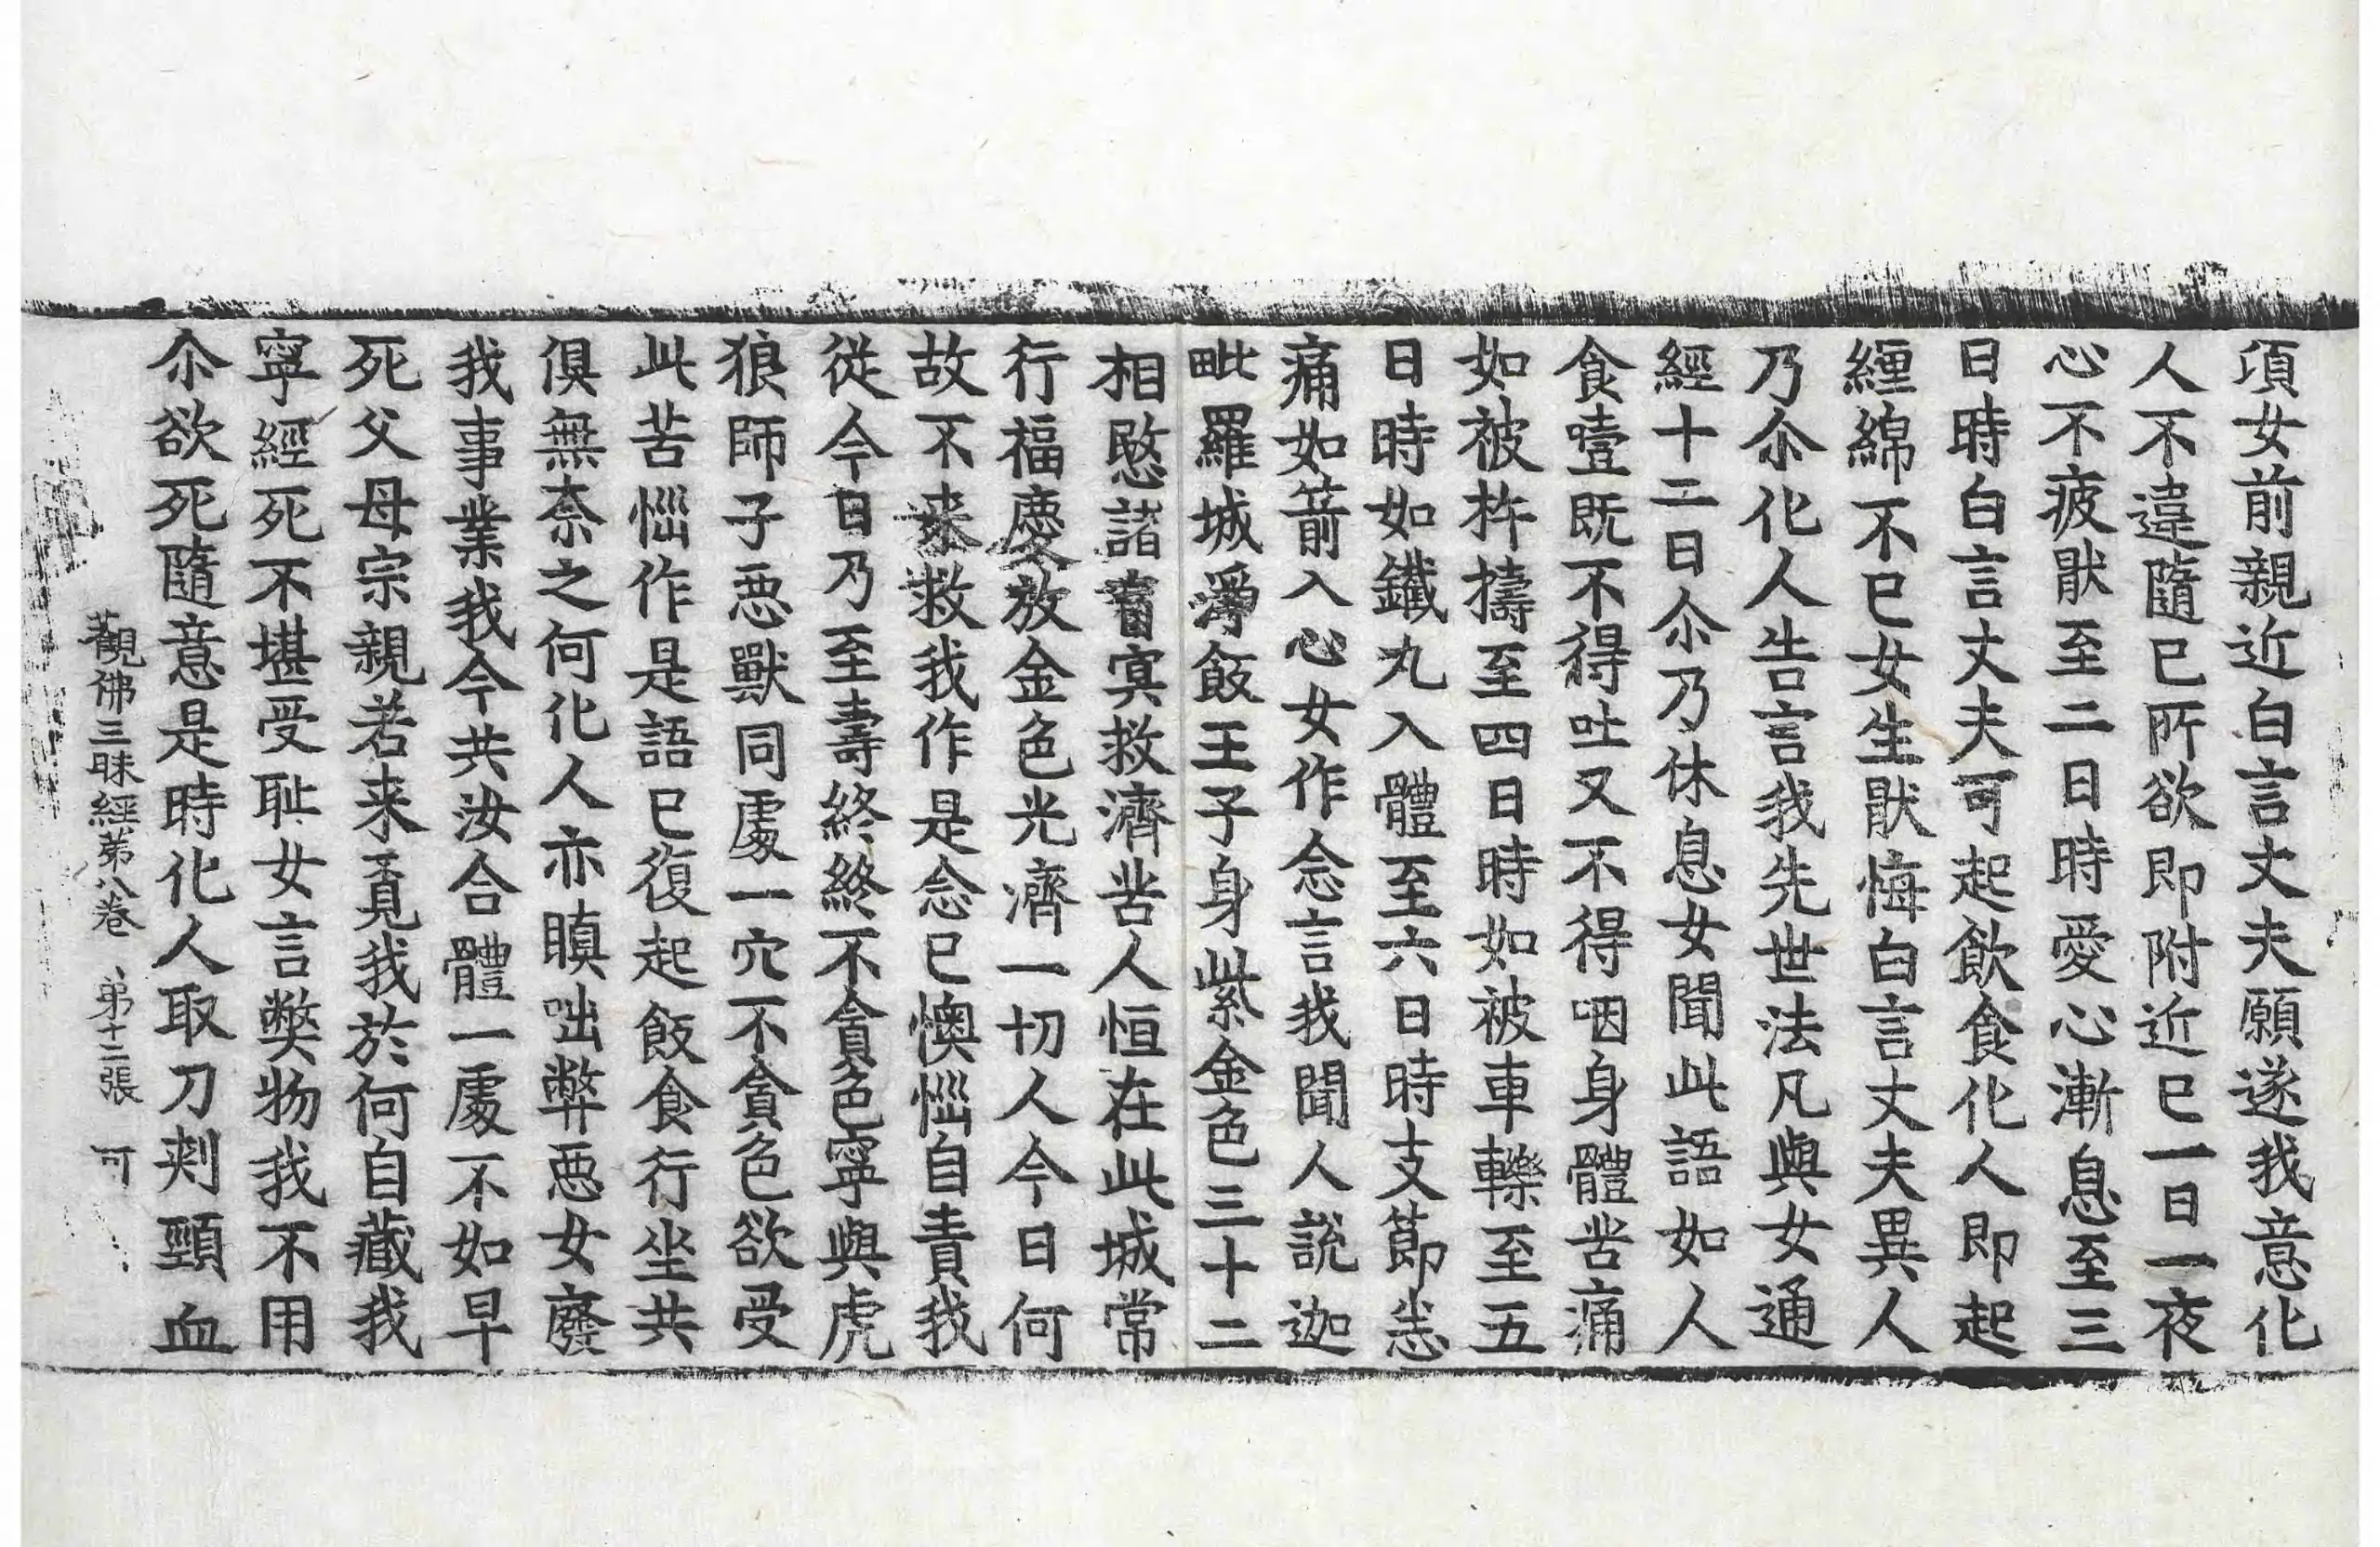 項女前親近白言丈夫願遂我意化
人不違隨已所欲即附近已一日一夜
心不疲猒至二日時愛心漸息至三
日時白言丈夫可起飲食化人即起
纏綿不已女生猒悔白言丈夫異人
乃尒化人告言我先世法凡與女通
經十二日尒乃休息女聞此語如人
食噎既不得吐又不得咽身體苦痛
如被杵擣至四日時如被車轢至五
日時如鐵丸入體至六日時支節悉
痛如箭入心女作念言我聞人說迦
毗羅城淨飯王子身紫金色三十二
相愍諸盲冥救濟苦人恒在此城常
行福慶放金色光濟一切人今日何
故不来救我作是念已懊惱自責我
從今日乃至壽終終不貪色寧與虎
狼師子惡獸同處一穴不貪色欲受
此苦惱作是語已復起飯食行坐共
俱無柰之何化人亦瞋咄弊惡女廢
我事業我今共汝合體一處不如早
死父母宗親若来覓我於何自藏我
寧經死不堪受耻女言弊物我不用
尒欲死隨意是時化人取刀刺頸血
觀佛三昧經第八卷 第十二張 可